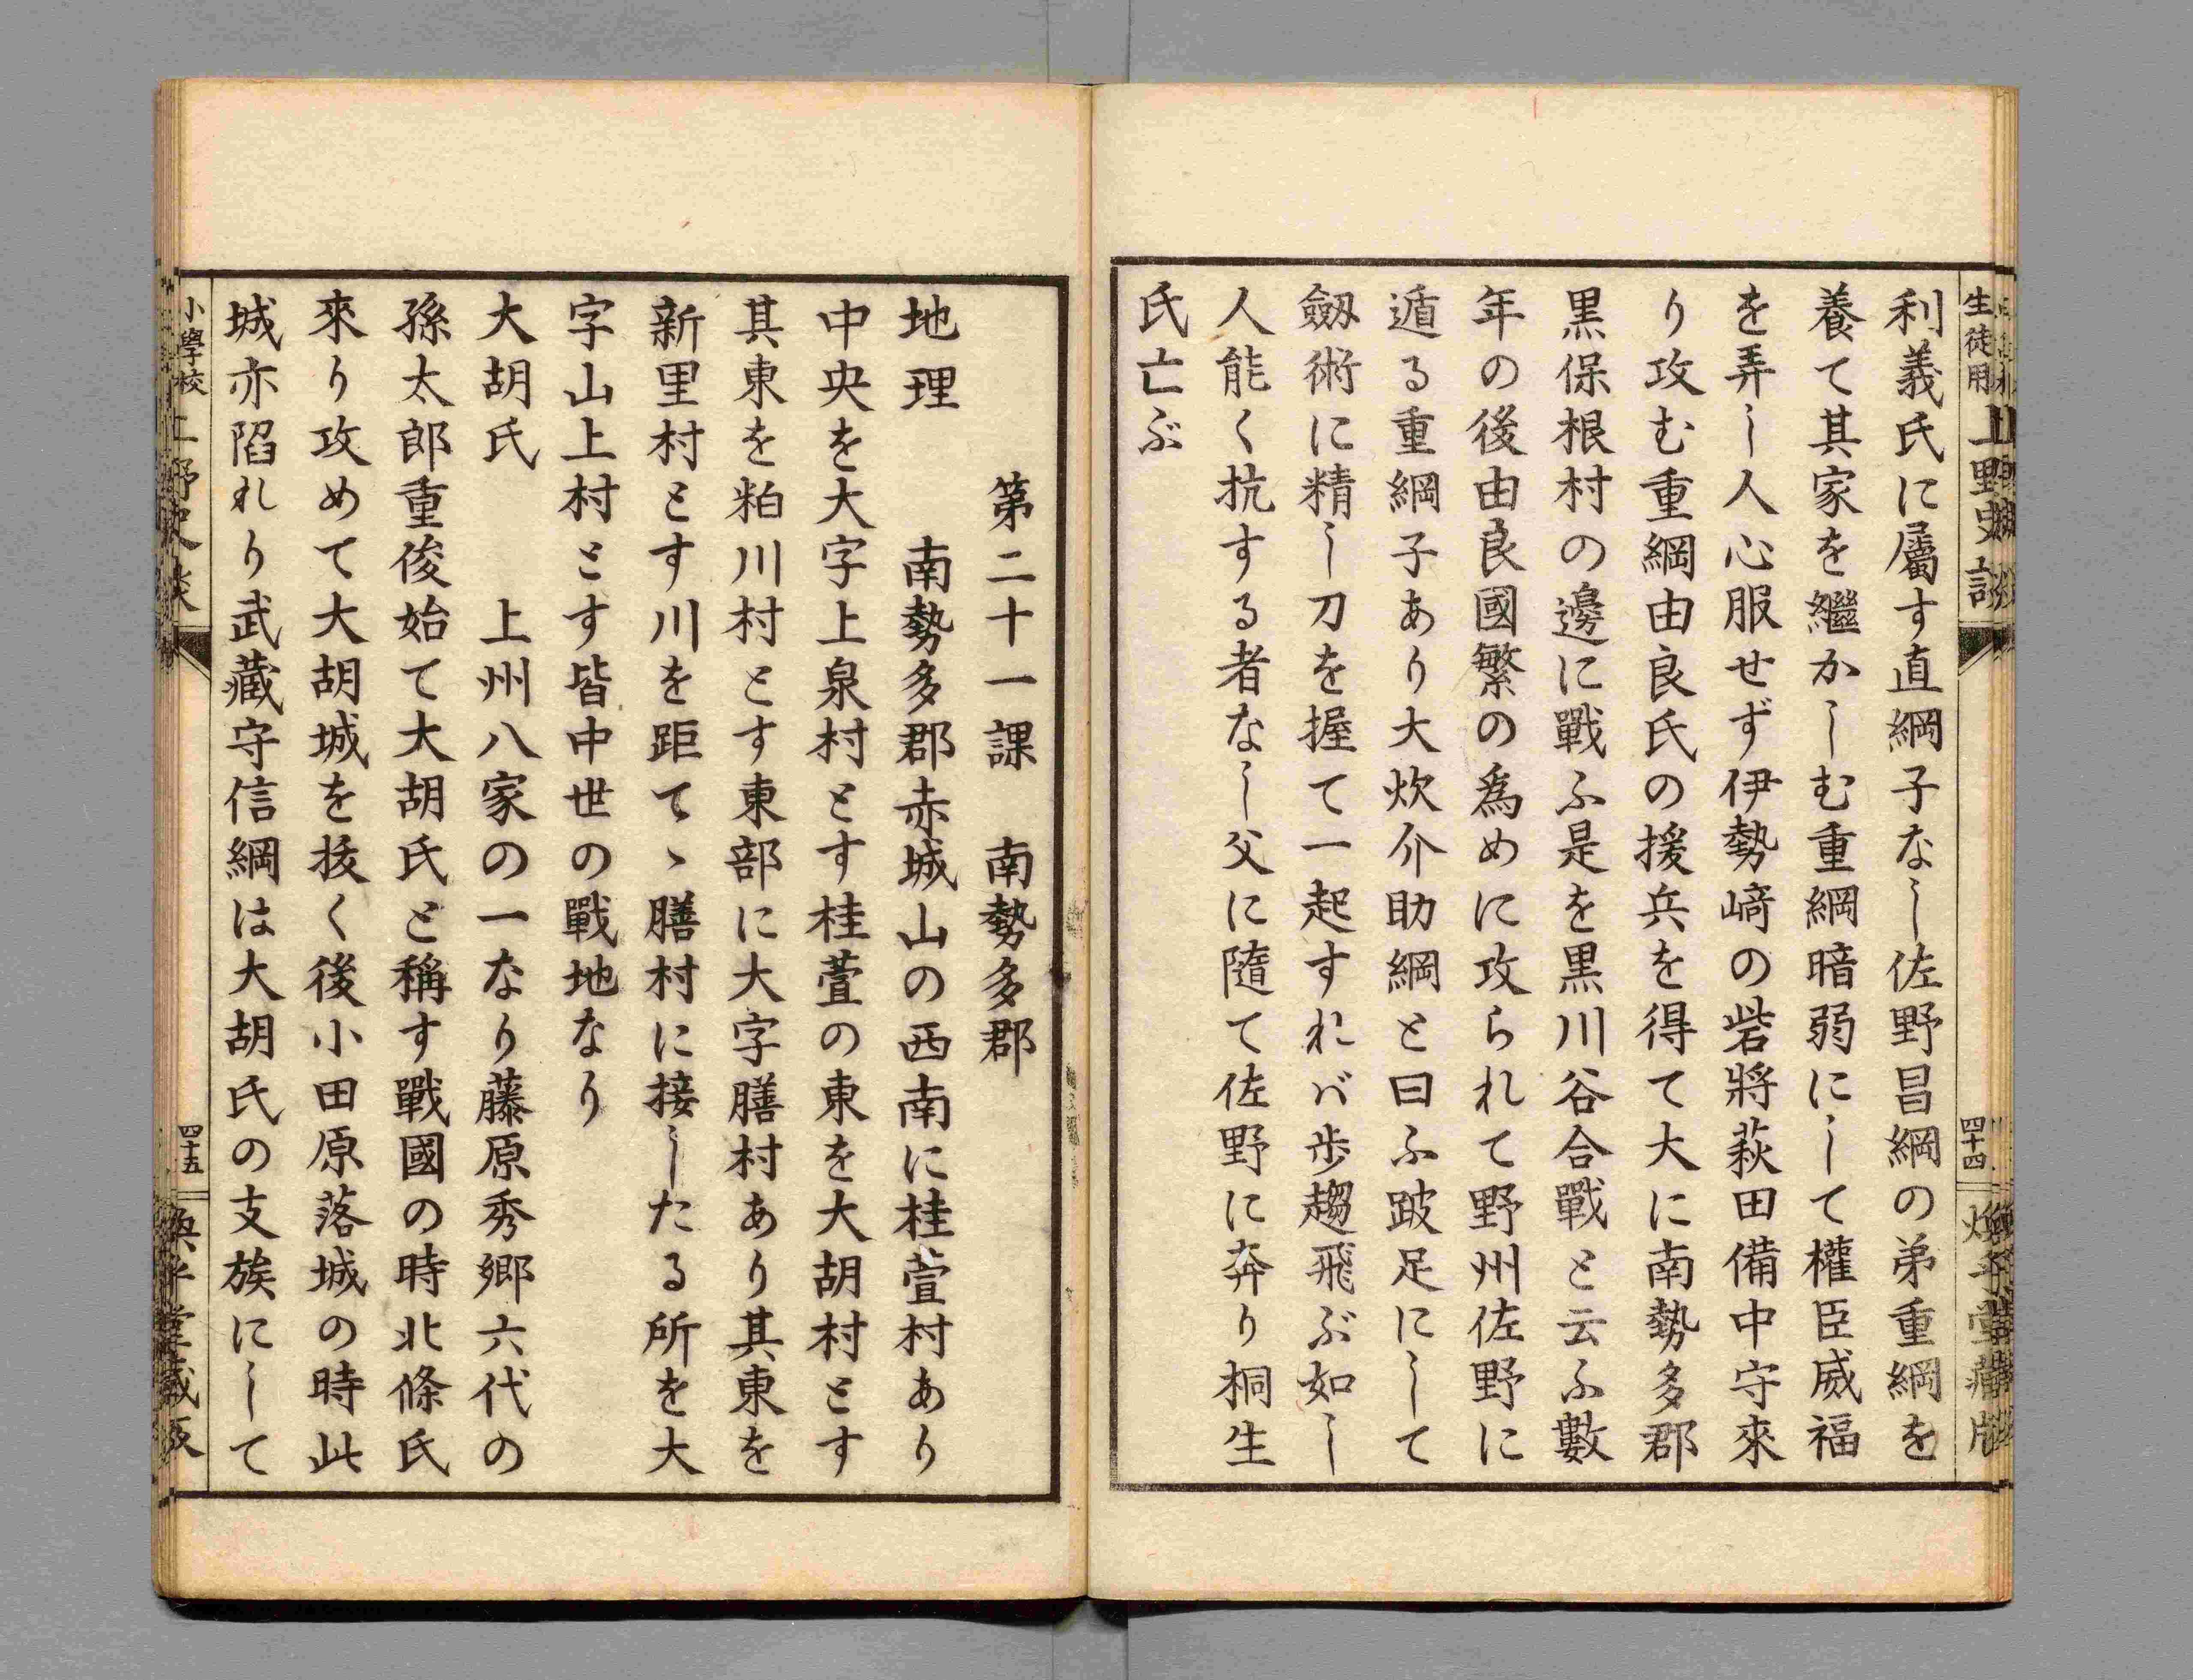 生徒用
上野史談
四十四
利義氏に屬す直綱子なし佐野昌綱の弟重綱を
養て其家を繼かしむ重綱暗弱にして權臣威福
を弄し人心服せず伊勢﨑の砦將萩田備中守來
り攻む重綱由良氏の援兵を得て大に南勢多郡
黒保根村の邊に戰ふ是を黒川谷合戰と云ふ數
年の後由良國繁の為めに攻られて野州佐野に
遁る重綱子あり大炊介助綱と曰ふ跛足にして
劔術に精し刀を握て一起すれバ歩趨飛ぶ如し
人能く抗する者なし父に隨て佐野に奔り桐生
氏亡ぶ
第二十一課　南勢多郡
地理　　南勢多郡赤城山の西南に桂萱村あり
中央を大字上泉村とす桂萱の東を大胡村とす
其東を粕川村とす東部に大字膳村あり其東を
新里村とす川を距てゝ膳村に接したる所を大
字山上村とす皆中世の戰地なり
大胡氏　　上州八家の一なり藤原秀郷六代の
孫太郎重俊始て大胡氏と稱す戰國の時北條氏
來り攻めて大胡城を拔く後小田原落城の時此
城亦陷れり武藏守信綱は大胡氏の支族にして
小學校
上野史談
四十五